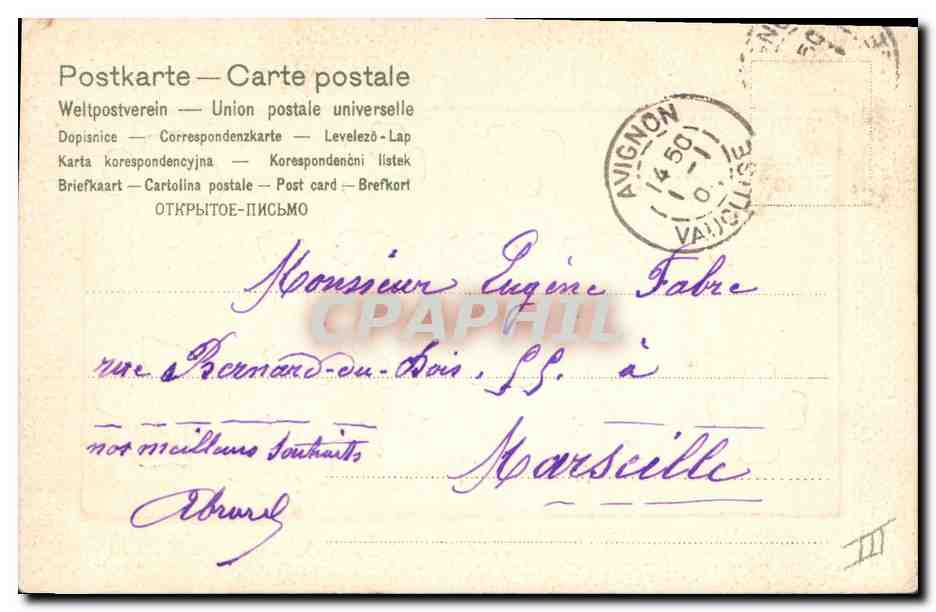 Postkarte — Carte postale
Weltpostverein — Union postale universelle
Dopisnice — Correspondenzkarte — Levelező-Lap
Karta korespondencyjna — Korespondenční listek
Briefkaart — Cartolina postale — Post card — Brefkort
ОТКРЫТОЕ-ПИСЬМО
AVIGNON
14 50
1 - 1
0
VAUCLUSE
Monsieur Eugène Fabre
CPAPHIL
rue Bernard-du-Bois. 55. à
nos meilleurs souhaits
Marseille
III